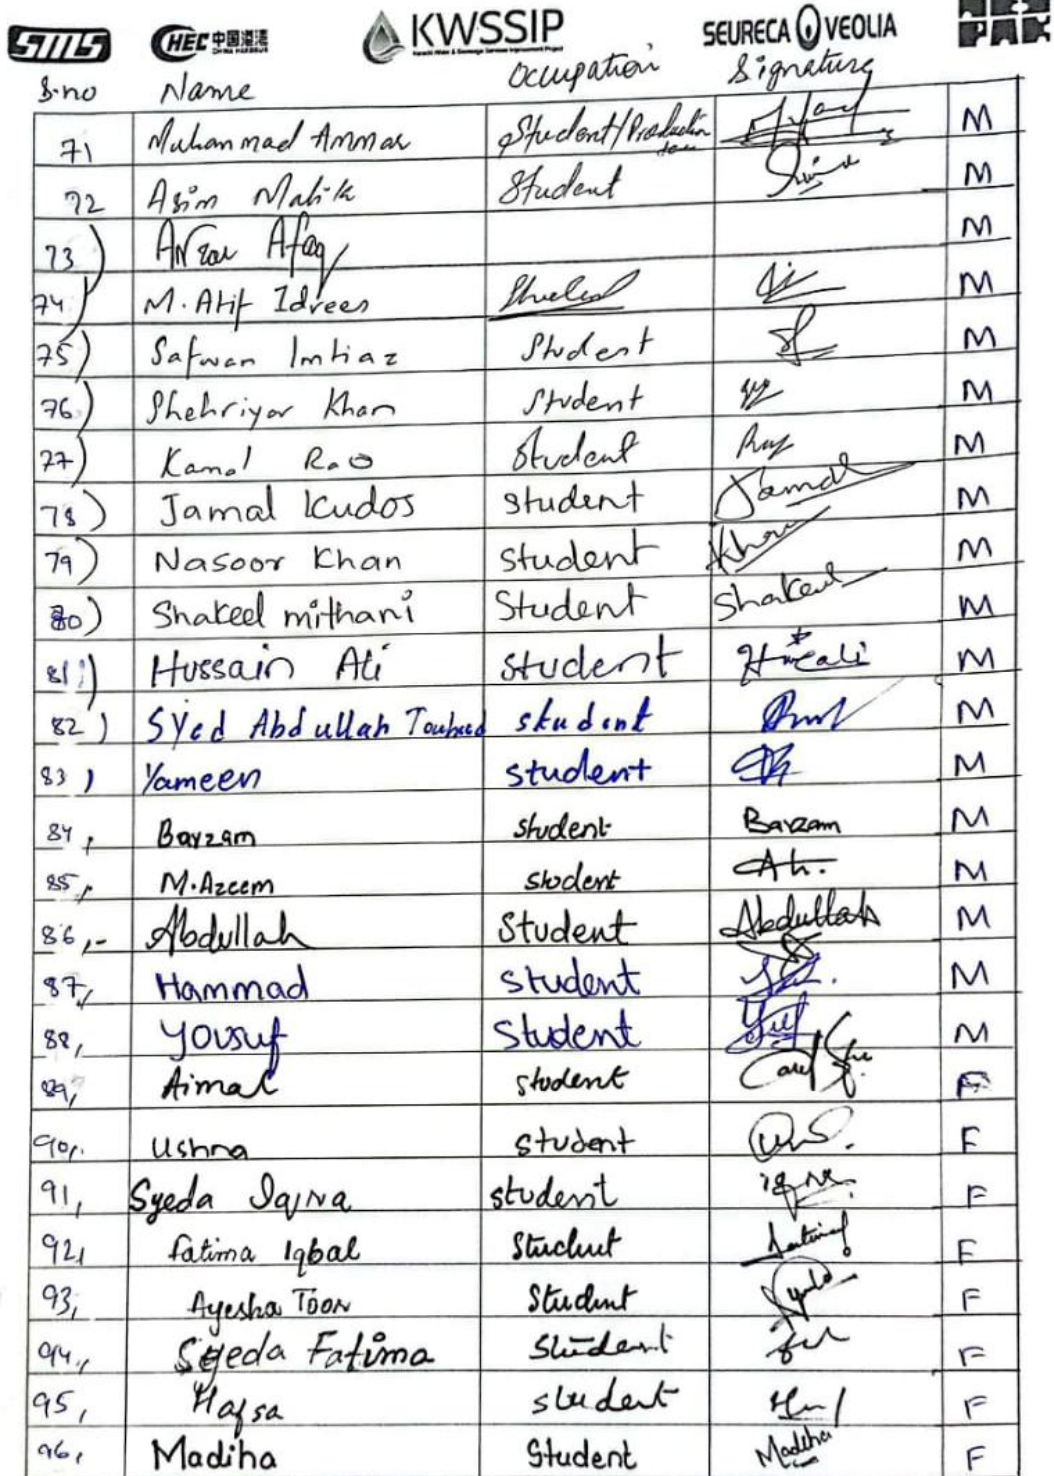 SMS CHEC 中国港湾 CHINA HARBOUR KWSSIP Karachi Water & Sewerage Services Improvement Project SEURECA VEOLIA PAK
S.no Name Occupation Signature
71 Muhammad Ammar Student/Production M
72 Asim Malik Student M
73) Afaq M
74) M. Atif Idrees Student M
75) Safwan Imtiaz Student M
76) Shehriyar Khan Student M
77) Kamal Rao Student M
78) Jamal Kudos Student Jamal M
79) Nasoor Khan Student Khan M
80) Shakeel mithani Student Shakeel M
81) Hussain Ali Student M
82) Syed Abdullah Touheed student M
83) Yameen student M
84, Barzam student Barzam M
85, M.Azeem student M
86,- Abdullah Student Abdullah M
87, Hammad Student M
88, Yousuf Student M
89, Aimal student F
90,. Ushna student F
91, Syeda Iqra student iqra F
92, fatima Iqbal Student F
93, Ayesha Toor Student F
94,, Syeda Fatima Student F
95, Hafsa student F
96, Madiha Student Madiha F